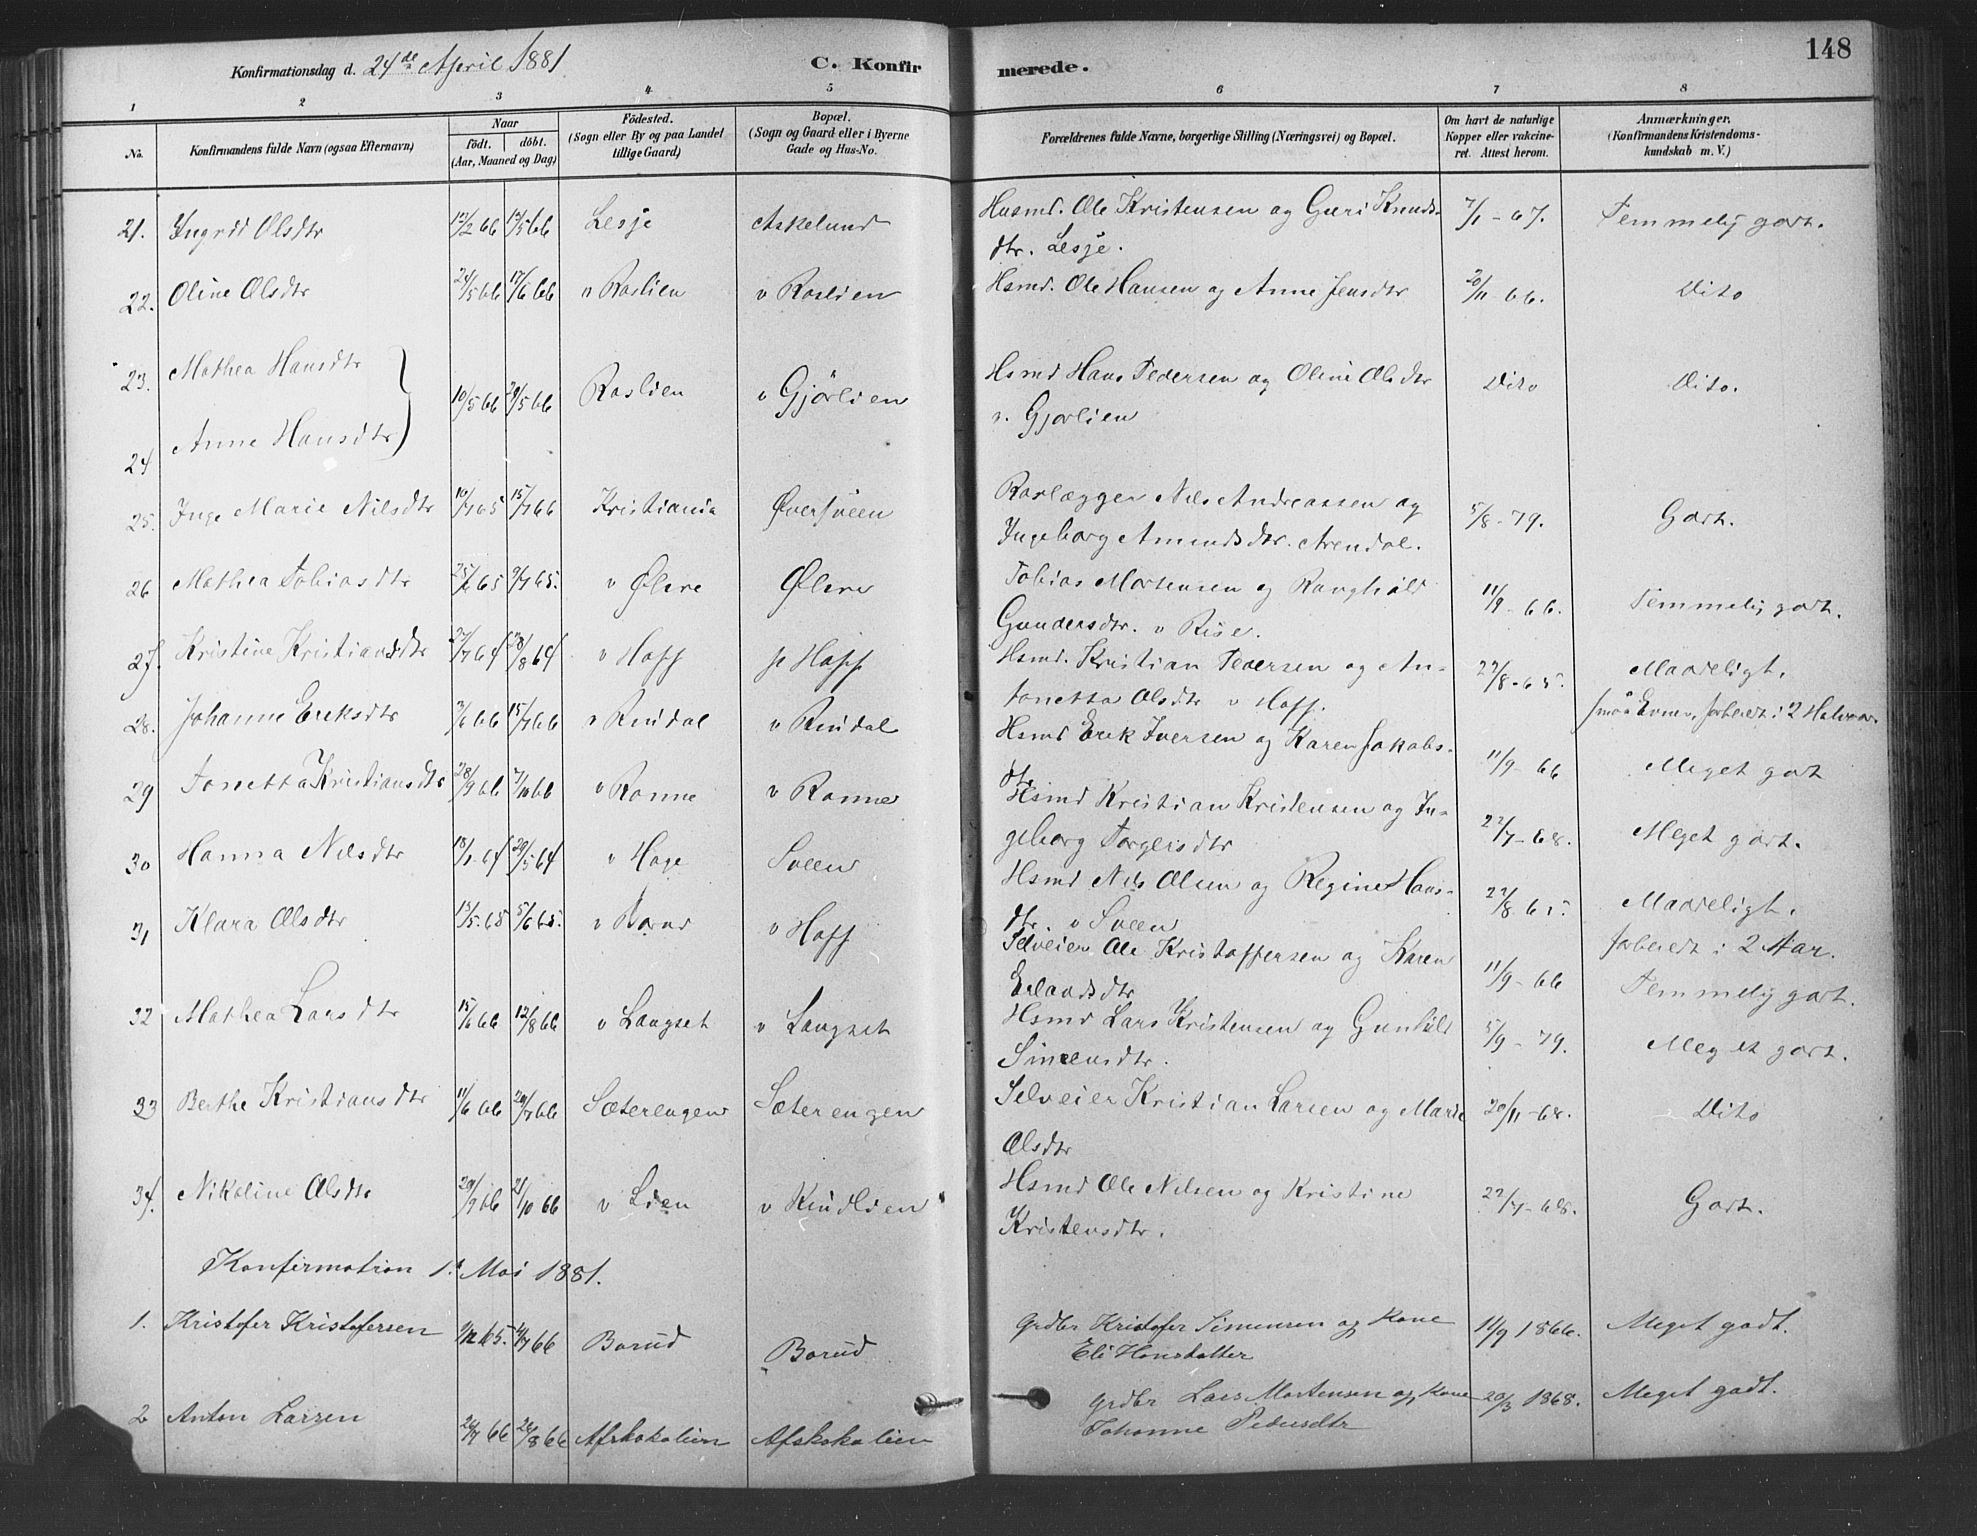 148
Konfirmationsdag d. 24de April 1881
C. Konfirmerede.
1 2 3 4 5 6 7 8
No. | Konfirmandens fulde Navn (ogsaa Efternavn) | Naar født. døbt. (Aar, Maaned og Dag) | Födested. (Sogn eller By og paa Landet tillige Gaard) | Bopæl. (Sogn og Gaard eller i Byerne Gade og Hus-No. | Forældrenes fulde Navne, borgerlige Stilling (Næringsvei) og Bopæl. | Om havt de naturlige Kopper eller vakcineret. Attest herom. | Anmærkninger. (Konfirmandens Kristendomskundskab m. V.)
21. Yngrid Olsdtr 12/2 66 /5 66 Lesje Askelund Husmd. Ole Kristensen og Guri Knudsdtr. Lesje. 7/1-67. Temmelig godt.
22. Oline Olsdtr 24/5 66 17/6 66 v Roslien v Roslien Hsmd. Ole Hansen og Anne Jensdtr 20/11-66. Dito
23. Mathea Hansdtr
24 Anne Hansdtr 10/5 66 /5 66 Roslien v Gjörlien Hsmd Hans Pedersen og Oline Olsdtr v. Gjorlien Dito Dito.
25. Inge Marie Nilsdtr 10/7 65 15/7 66 Kristiania Øversveen Nils Andreassen og Ingeborg Amundsdtr. Arendal. 5/8-79. Godt.
26 Mathea Tobiasdtr 25/ 65 9/7 65. v Ølere Ølere Tobias Mortensen og Ranghild Gundersdtr. v Rise. 11/9-66. Temmelig godt.
27. Kristine Kristiansdtr 27/7 64 28/8 64 v Hoff p Hoff Hsmd. Kristian Pedersen og Antonetta Olsdtr v Hoff. 22/8-65. Maadeligt. smaa Evner, forberedt i 2 Halvaar.
28. Johanne Eriksdtr /6 66 15/7 66 v Rindal v Rindal Hsmd Erik Iversen og Karen Jakobsdtr 11/9-66 Meget godt
29 Tonetta Kristiansdtr 28/9 66 7/10 66 v Ronne v Ronne Hsmd Kristian Kristensen og Ingeborg Torgersdtr 22/7-68. Meget godt.
30 Hanna Nilsdtr 18/1 64 29/5 64 v Hage Sveen Hsmd Nils Olsen og Regine Hansdtr. v Sveen 22/8 65. Maadeligt. forberedt i 2 Aar.
31 Klara Olsdtr 13/5.65 5/6 65. v v Hoff Selveier Ole Kristoffersen og Karen Erlandsdtr 11/9-66 Temmelig godt.
32 Mathea Larsdtr 15/6 66 12/8 66 v Langset v Langset Hsmd Lars Kristensen og Gunhild Simensdtr. 5/9-79. Meget godt.
33 Berthe Kristiansdtr 11/6 66 29/7 66 Sæterengen Sæterengen Selveier Kristian Larsen og Marie Olsdtr 20/11-68. Dito
34. Nikoline Olsdtr 20/9 66 21/10 66 v Lien v Rindlien Hsmd Ole Nilsen og Kristine Kristensdtr. 22/7-68. Godt.
Konfirmation 1. Mai 1881.
1. Kristofer Kristofersen 9/12 65. /7 66 Borud Borud Grdbr Kristofer Simensen og Kone Eli Hansdatter 11/9 1866. Meget godt.
2 Anton Larsen 24/7 66 26/8 66 Afskakelien Afskakelien Grdbr Lars Mortensen og Kone Johanne Pedersdtr 20/3 1868. Meget godt.